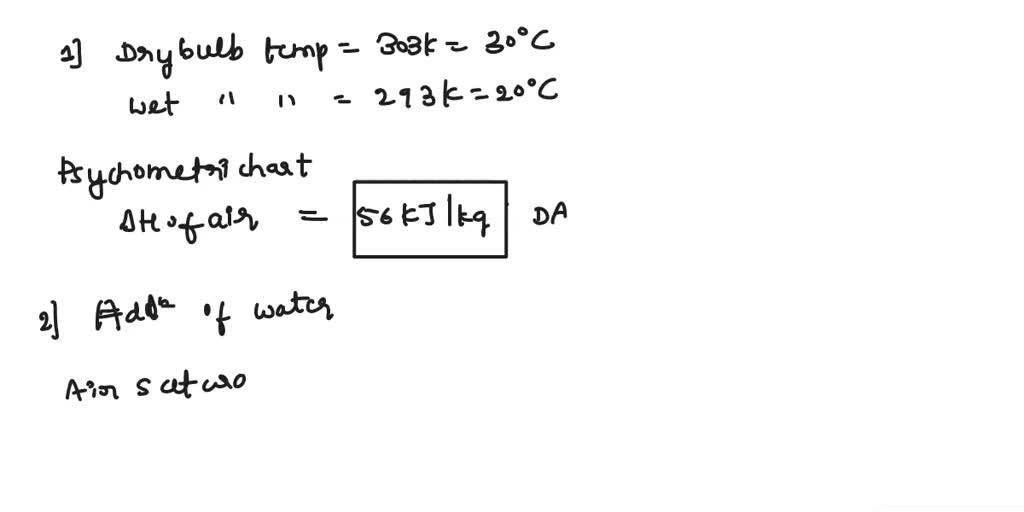 1] Drybulb temp = 303k = 30°C
wet " " = 293k = 20°C
Psychometri chart
ΔH of air = 56 kJ/kg DA
2] Addn of water
Air satura